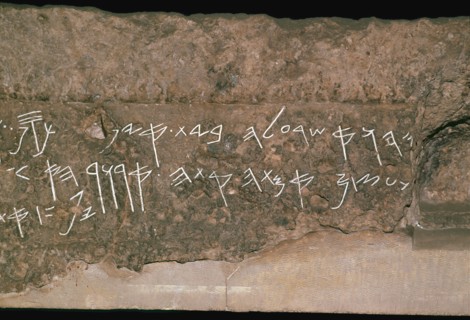 𐤉𐤄𐤅 𐤀𐤔𐤓 𐤏𐤋 𐤄𐤁𐤉𐤕·𐤀𐤉𐤍 𐤊𐤎𐤐
𐤅𐤏𐤑𐤌𐤕 𐤀𐤌𐤕𐤄 𐤀𐤕𐤄·𐤀𐤓𐤅𐤓 𐤄𐤀𐤃
𐤉𐤐𐤕𐤇 𐤀𐤕